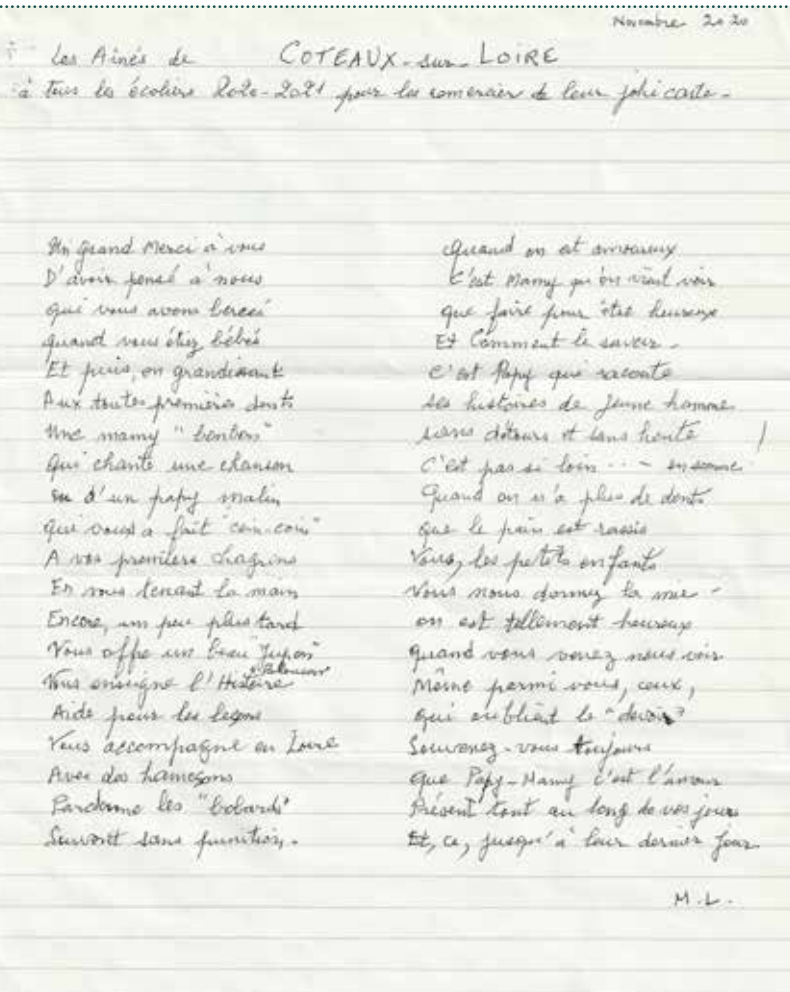 Novembre 2020
Les Ainés de COTEAUX-sur-LOIRE
à tous les écoliers 2020-2021 pour les remercier de leur jolie carte.
Un grand Merci à vous
D'avoir pensé à nous
qui vous avons bercé
quand vous étiez bébés
Et puis, en grandissant
Aux toutes premières dents
Une mamy "bonbon"
Qui chante une chanson
ou d'un papy malin
qui vous a fait "coin-coin"
A vos premiers chagrins
En vous tenant la main
Encore, un peu plus tard
Vous offre un beau "Jupon"
Vous enseigne l'Histoire
Aide pour les leçons
Vous accompagne en Loire
Avec des hameçons
Pardonne les "bobards"
Souvent sans punition.
Quand on est amoureux
C'est Mamy qu'on vient voir
que faire pour être heureux
Et Comment le savoir.
C'est Papy qui raconte
ses histoires de jeune homme
sans détours et sans honte
C'est pas si loin... en somme !
Quand on n'a plus de dents
que le pain est rassis
Vous, les petits enfants
Vous nous donnez la
on est tellement heureux
quand vous venez nous voir
Même parmi vous, ceux,
qui oublient le "devoir"
Souvenez-vous toujours
que Papy-Mamy c'est l'amour
Présent tout au long de vos jours
Et, ce, jusqu'à leur dernier jour
M.L.